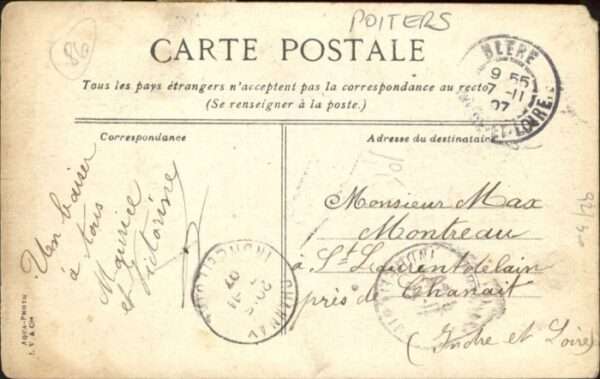 POITERS
86
CARTE POSTALE
Tous les pays étrangers n'acceptent pas la correspondance au recto
(Se renseigner à la poste.)
BLERE
9 55
7 -11
07
ET-LOIRE
Correspondance
Adresse du destinataire
Un baiser
à tous
Maurice
et Victorine
Monsieur Max
Montreau
à St Laurent
près de Chanait
(Indre et Loire)
INDRE
07
AQUA-PHOTO
L. V. & Cie